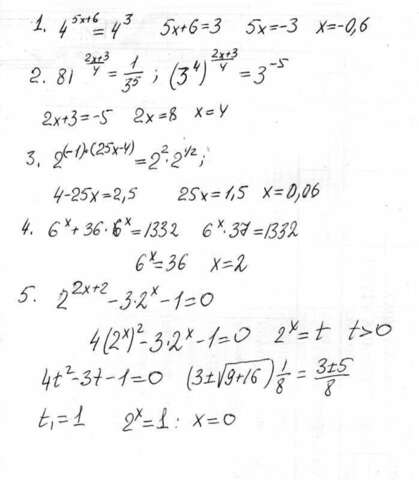 1. 4^{5x+6} = 4^3 5x+6=3 5x=-3 x=-0,6
2. 81^{\frac{2x+3}{4}} = \frac{1}{3^5} ; (3^4)^{\frac{2x+3}{4}} = 3^{-5}
2x+3=-5 2x=8 x=4
3. 2^{(-1)·(25x-4)} = 2^2·2^{1/2};
4-25x=2,5 25x=1,5 x=0,06
4. 6^x+36·6^x=1332 6^x·37=1332
6^x=36 x=2
5. 2^{2x+2}-3·2^x-1=0
4(2^x)^2-3·2^x-1=0 2^x=t t>0
4t^2-3t-1=0 (3±\sqrt{9+16})\frac{1}{8} = \frac{3±5}{8}
t_1=1 2^x=1: x=0